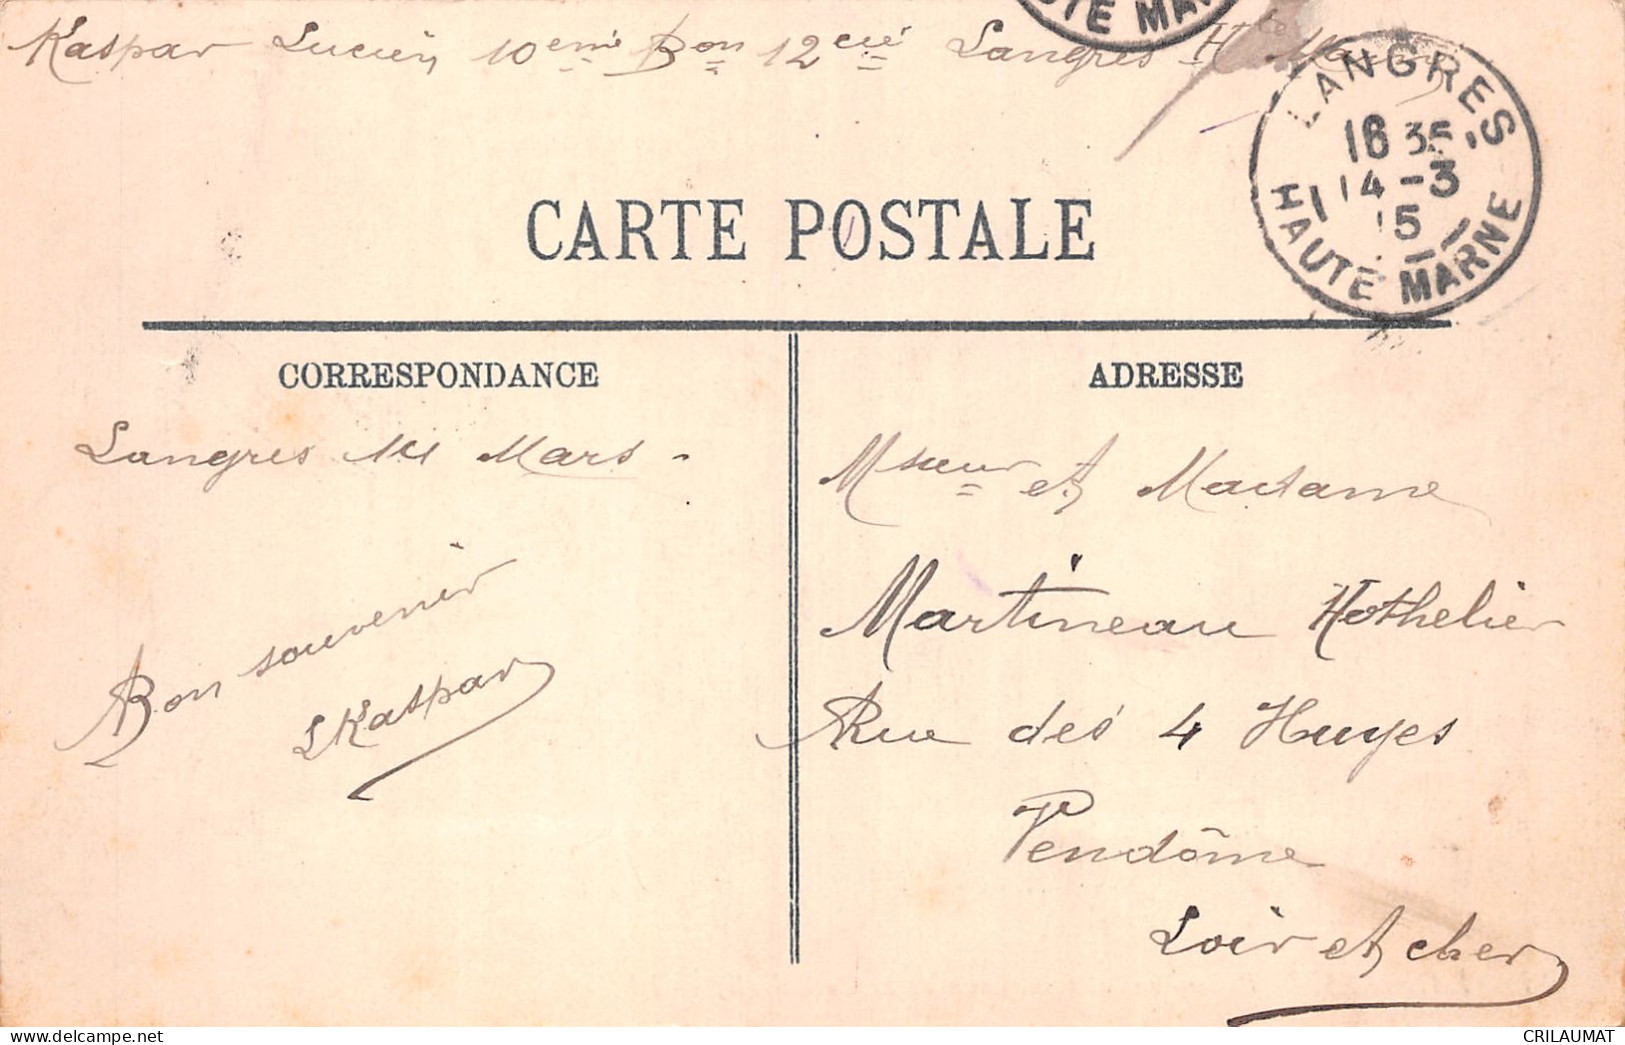 Kaspar Lucien 10eme Bon 12cie Langres Hte Marne
TE MAR
LANGRES
16 35
14 - 3
15
HAUTE MARNE
CARTE POSTALE
CORRESPONDANCE
ADRESSE
Langres 14 Mars -
Bon souvenir
LKaspar
Msieur et Madame
Martineau Hothelier
Rue des 4 Huyes
Vendôme
Loir et cher
www.delcampe.net
CRILAUMAT